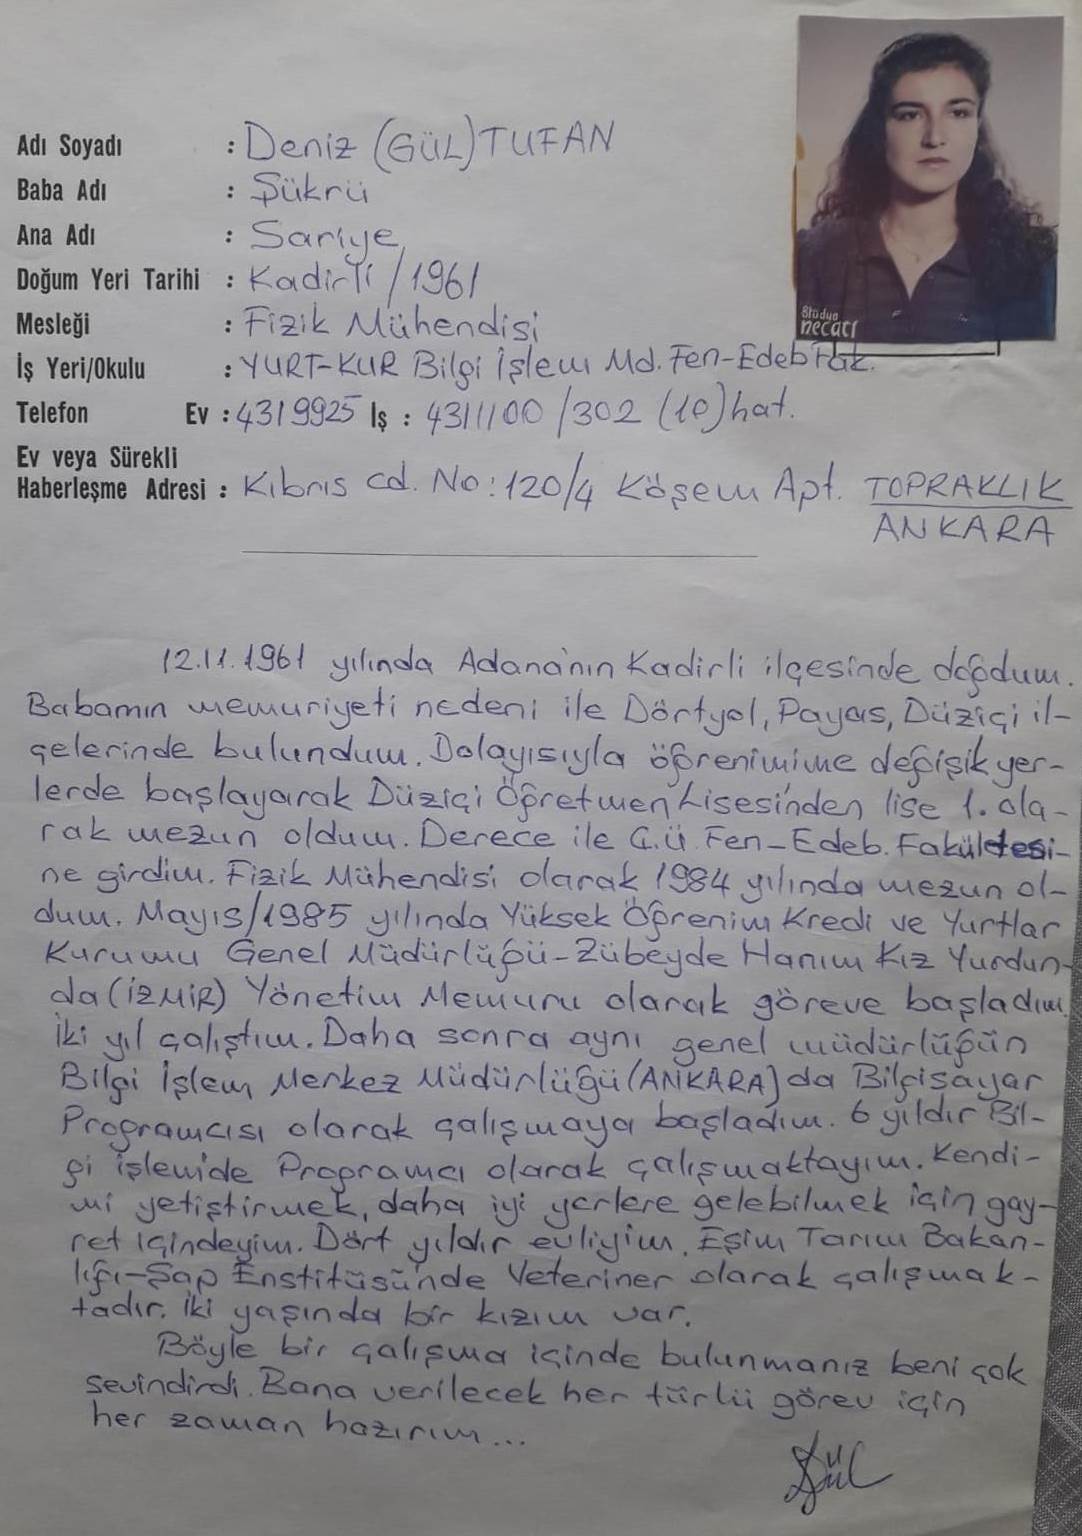 Stüdyo
necati
Adı Soyadı : Deniz (GÜL) TUFAN
Baba Adı : Şükrü
Ana Adı : Sariye
Doğum Yeri Tarihi : Kadirli / 1961
Mesleği : Fizik Mühendisi
İş Yeri/Okulu : YURT-KUR Bilgi İşlem Md. Fen-Edeb Fak.
Telefon Ev : 4319925 İş : 4311100 /302 (10) hat.
Ev veya Sürekli
Haberleşme Adresi : Kıbrıs cd. No: 120/4 Köşem Apt. TOPRAKLIK
ANKARA
12.11.1961 yılında Adana'nın Kadirli ilçesinde doğdum.
Babamın memuriyeti nedeni ile Dörtyol, Payas, Düziçi il-
çelerinde bulundum. Dolayısıyla öğrenimime değişik yer-
lerde başlayarak Düziçi Öğretmen Lisesi'nden lise 1. ola-
rak mezun oldum. Derece ile G.Ü Fen-Edeb. Fakültesi-
ne girdim. Fizik Mühendisi olarak 1984 yılında mezun ol-
dum. Mayıs/1985 yılında Yüksek Öğrenim Kredi ve Yurtlar
Kurumu Genel Müdürlüğü-Zübeyde Hanım Kız Yurdun-
da (İZMİR) Yönetim Memuru olarak göreve başladım.
İki yıl çalıştım. Daha sonra aynı genel müdürlüğün
Bilgi İşlem Merkez Müdürlüğü (ANKARA) da Bilgisayar
Programcısı olarak çalışmaya başladım. 6 yıldır Bil-
gi işlem'de Programcı olarak çalışmaktayım. Kendi-
mi yetiştirmek, daha iyi yerlere gelebilmek için gay-
ret içindeyim. Dört yıldır evliyim. Eşim Tarım Bakan-
lığı-Şap Enstitüsü'nde Veteriner olarak çalışmak-
tadır. İki yaşında bir kızım var.
Böyle bir çalışma içinde bulunmanız beni çok
sevindirdi. Bana verilecek her türlü görev için
her zaman hazırım...
Gül